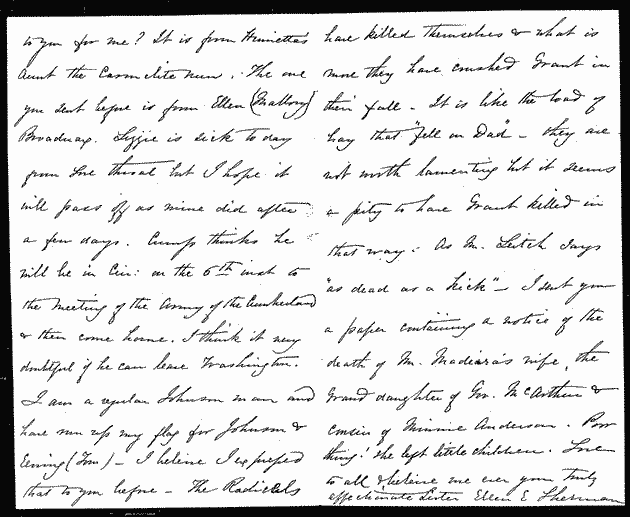 to you for me? It is from Henrietta's
Aunt the Carmelite nun. The one
you sent before is from Ellen (Mallory)
Broadway. Lizzie is sick today
from sore throat but I hope it
will pass off as mine did after
a few days. Cump thinks he
will be in Cin: on the 6th inst to
the meeting of the Army of the Cumberland
& then come home. I think it very
doubtful if he can leave Washington.
I am a regular Johnson man and
have run up my flag for Johnson &
Ewing (Tom) – I believe I expressed
that to you before – The Radicals
have killed themselves & what is
more they have crushed Grant in
their fall – It is like the load of
hay that "fell on Dad" – they are
not worth lamenting but it seems
a pity to have Grant killed in
that way: As M. Leitch says
"as dead as a kick" – I sent you
a paper containing a notice of the
death of Mr. Madeira's wife, the
Grand daughter of Gov. McArthur &
cousin of Minnie Anderson. Poor
thing! she left little children. Love
to all & believe me ever your truly
affectionate Sister Ellen E Sherman